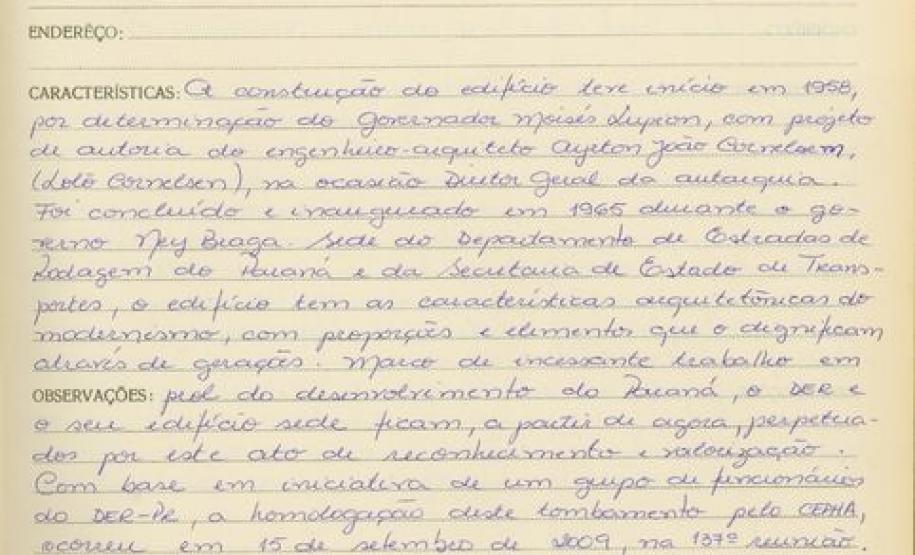 ENDERÊÇO:
CARACTERÍSTICAS: A construção do edifício teve início em 1958,
por determinação do Governador Moisés Lupion, com projeto
de autoria do engenheiro-arquiteto Ayrton João Cornelsem,
(Lolô Cornelsen), na ocasião Diretor Geral da autarquia.
Foi concluído e inaugurado em 1965 durante o go-
verno Ney Braga. Sede do Departamento de Estradas de
Rodagem do Paraná e da Secretaria de Estado de Trans-
portes, o edifício tem as características arquitetônicas do
modernismo, com proporções e elementos que o dignificam
através de gerações. Marco de incessante trabalho em
OBSERVAÇÕES: prol do desenvolvimento do Paraná, o DER e
o seu edifício sede ficam, a partir de agora, perpetua-
dos por este ato de reconhecimento e valorização.
Com base em iniciativa de um grupo de funcionários
do DER-PR, a homologação deste tombamento pelo CEPHA,
ocorreu em 15 de setembro de 2009, na 137ª reunião.